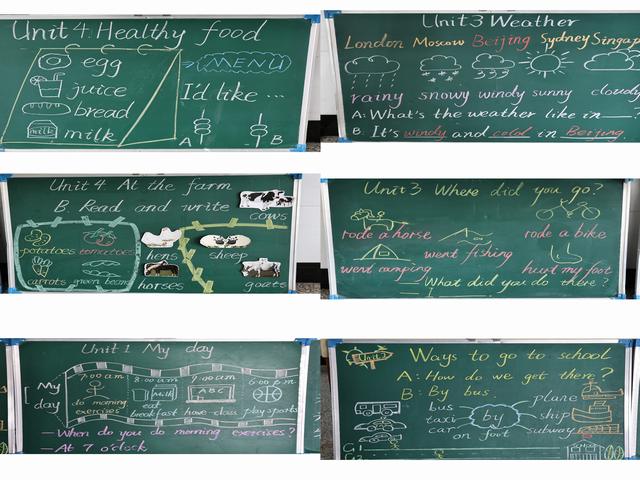 Unit 4 Healthy food
egg
juice
bread
milk
MENU
I'd like ...
A
B
Unit 3 Weather
London Moscow Beijing Sydney Singap
rainy snowy windy sunny cloudy
A: What's the weather like in ___?
B: It's windy and cold in Beijing.
Unit 4 At the farm
B Read and write
cows
potatoes tomatoes
carrots green beans
hens
horses
sheep
goats
Unit 3 Where did you go?
rode a horse
went fishing
rode a bike
went camping
hurt my foot
What did you do there?
Unit 1 My day
My day
7:00 a.m.
do morning exercises
8:00 a.m.
eat breakfast
9:00 a.m.
ABC
have class
6:00 p.m.
play sports
—When do you do morning exercises?
—At 7 o'clock
Unit 2
Ways to go to school
A: How do we get there?
B: By bus.
bus
taxi
car
on foot
by
plane
ship
subway
G1